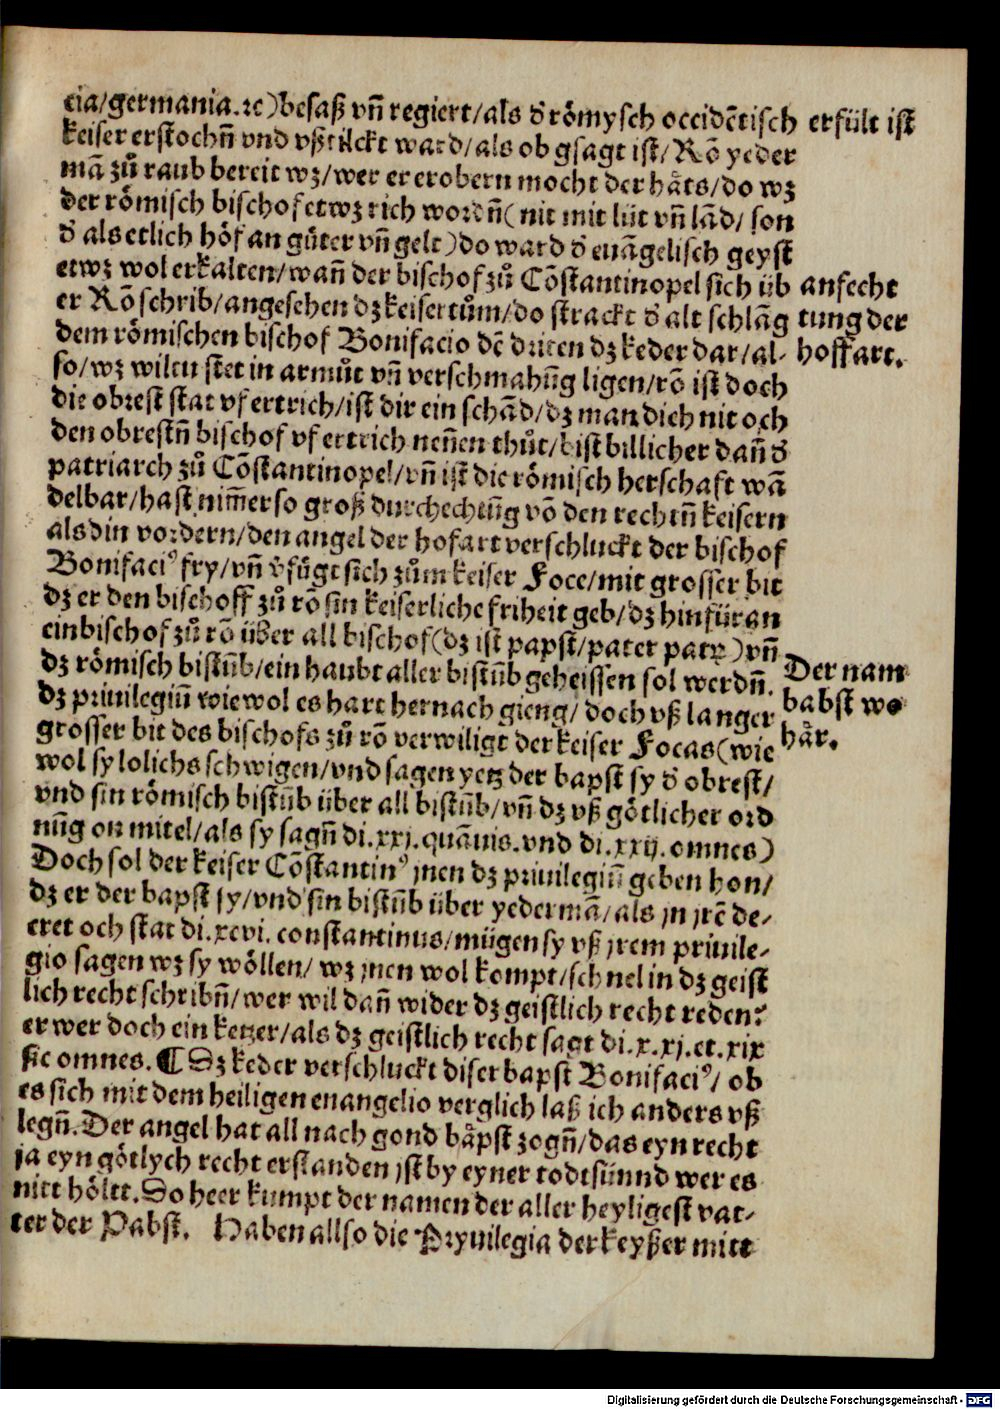 cia/germania.ꝛc)besaß vñ regiert/als d̓ römysch occidẽtisch
keiser erstochñ vnd vßtilckt ward/als ob gsagt ist/Rõ yeder
mã zů raub bereit wz/wer er erobern mocht der häts/do wz
der römisch bischof etwz rich wordñ(nit mit lüt vñ lãd/son
d̓ als etlich höf an güter vñ gelt)do ward d̓ euãgelisch geyst
etwz wol erkalten/wañ der bischof zů Cõstantinopel sich üb
er Rõ schrib/angesehen dz keisertům/do strackt d̓ alt schlãg
dem römischen bischof Bonifacio dẽ driten dz keder dar/al-
so/wz wiltu stet in armůt vñ verschmahũg ligen/rõ ist doch
die obrest stat vf ertrich/ist dir ein schãd/dz man dich nit och
den obrestñ bischof vf ertrich neñen thůt/bist billicher dañ d̓
patriarch zů Cõstantinopel/vñ ist die römisch herschaft wã
delbar/hast nim̃er so groß durchechtũg võ den rechtñ keisern
als din vordern/den angel der hofart verschluckt der bischof
Bonifaciꝰ fry/vñ v̓fůgt sich zům keiser Foce/mit grosser bit
dz er den bischoff zů rõ sin keiserliche friheit geb/dz hinfür an
ein bischof zů rõ über all bischof(dz ist papst/pater patꝝ)vñ
dz römisch bistũb/ein haubt aller bistũb geheissen sol werdñ.
dz priuilegiũ wiewol es hart hernach gieng/doch vß langer
grosser bit des bischofs zů rõ verwiligt der keiser Focas(wie
wol sy lolichs schwigen/vnd sagen yetz der bapst sy d̓ obrest/
vnd sin römisch bistũb über all bistũb/vñ dz vß götlicher ord
nũg on mitel/als sy sagñ di.xxj.quãuis.vnd di.xxij.omnes)
Doch sol der keiser Cõstantinꝰ jnen dz priuilegiũ geben hon/
dz er der bapst sy/vnd sin bistũb über yedermã/als jn jrẽ de-
cret och stat di.xcvi. constantinus/mügen sy vß jrem priuile-
gio sagen wz sy wöllen/ wz jnen wol kompt/schnel in dz geist
lich recht schribñ/wer wil dañ wider dz geistlich recht reden?
er wer doch ein ketzer/als dz geistlich recht sagt di.x.xj.et.xix
sic omnes. ¶ Dz keder verschluckt diser bapst Bonifaciꝰ/ ob
es sich mit dem heiligen euangelio verglich laß ich anders vß
legñ.Der angel hat all nach gond bäpst zogñ/das eyn recht
ja eyn götlych recht erstanden jst by eyner todtsünnd wer es
nitt höltt.So heer kumpt der namen der aller heyligest vat-
ter der Pabst. Haben allso die Pryuilegia der keyßer mitt
erfült ist
anfecht
tung der
hoffart.
Der nam
babst wo
här.
Digitalisierung gefördert durch die Deutsche Forschungsgemeinschaft - DFG